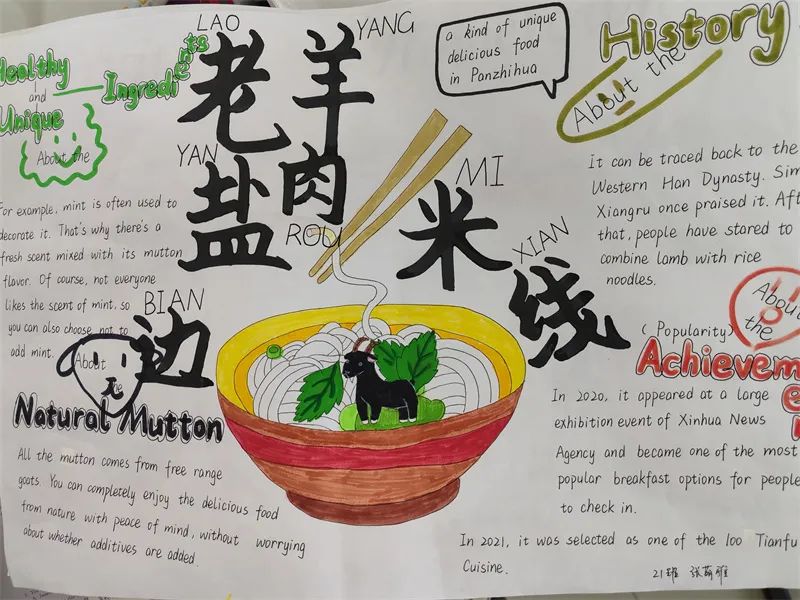 LAO
老
YANG
羊
YAN
盐
肉
ROU
BIAN
边
MI
米
XIAN
线
a kind of unique
delicious food
in Panzhihua
Healthy
and
Unique
Ingredients
About the
For example, mint is often used to
decorate it. That's why there's a
fresh scent mixed with its mutton
flavor. Of course, not everyone
likes the scent of mint, so
you can also choose not to
add mint.
About
Natural Mutton
All the mutton comes from free range
goats. You can completely enjoy the delicious food
from nature with peace of mind, without worrying
about whether additives are added.
History
About the
It can be traced back to the
Western Han Dynasty. Sim
Xiangru once praised it. Aft
that, people have stared to
combine lamb with rice
noodles.
About
the
(Popularity)
Achievemen
In 2020, it appeared at a large
exhibition event of Xinhua News
Agency and became one of the most
popular breakfast options for people
to check in.
In 2021, it was selected as one of the 100 Tianfu
Cuisine.
21班